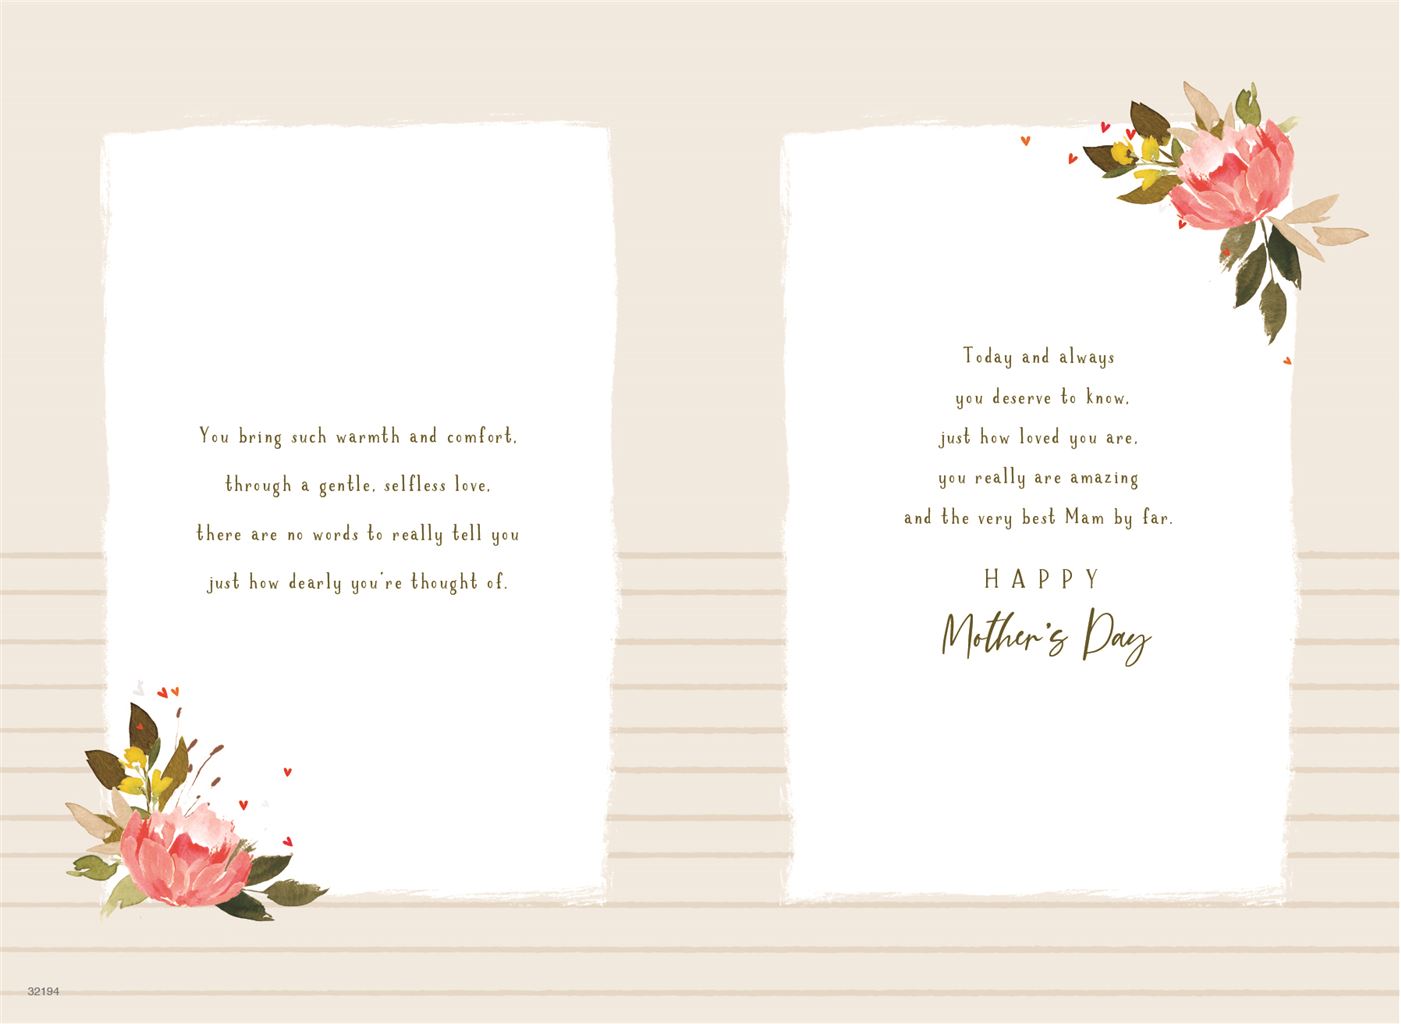 You bring such warmth and comfort,
through a gentle, selfless love,
there are no words to really tell you
just how dearly you're thought of.
32194
Today and always
you deserve to know,
just how loved you are,
you really are amazing
and the very best Mam by far.
HAPPY
Mother's Day